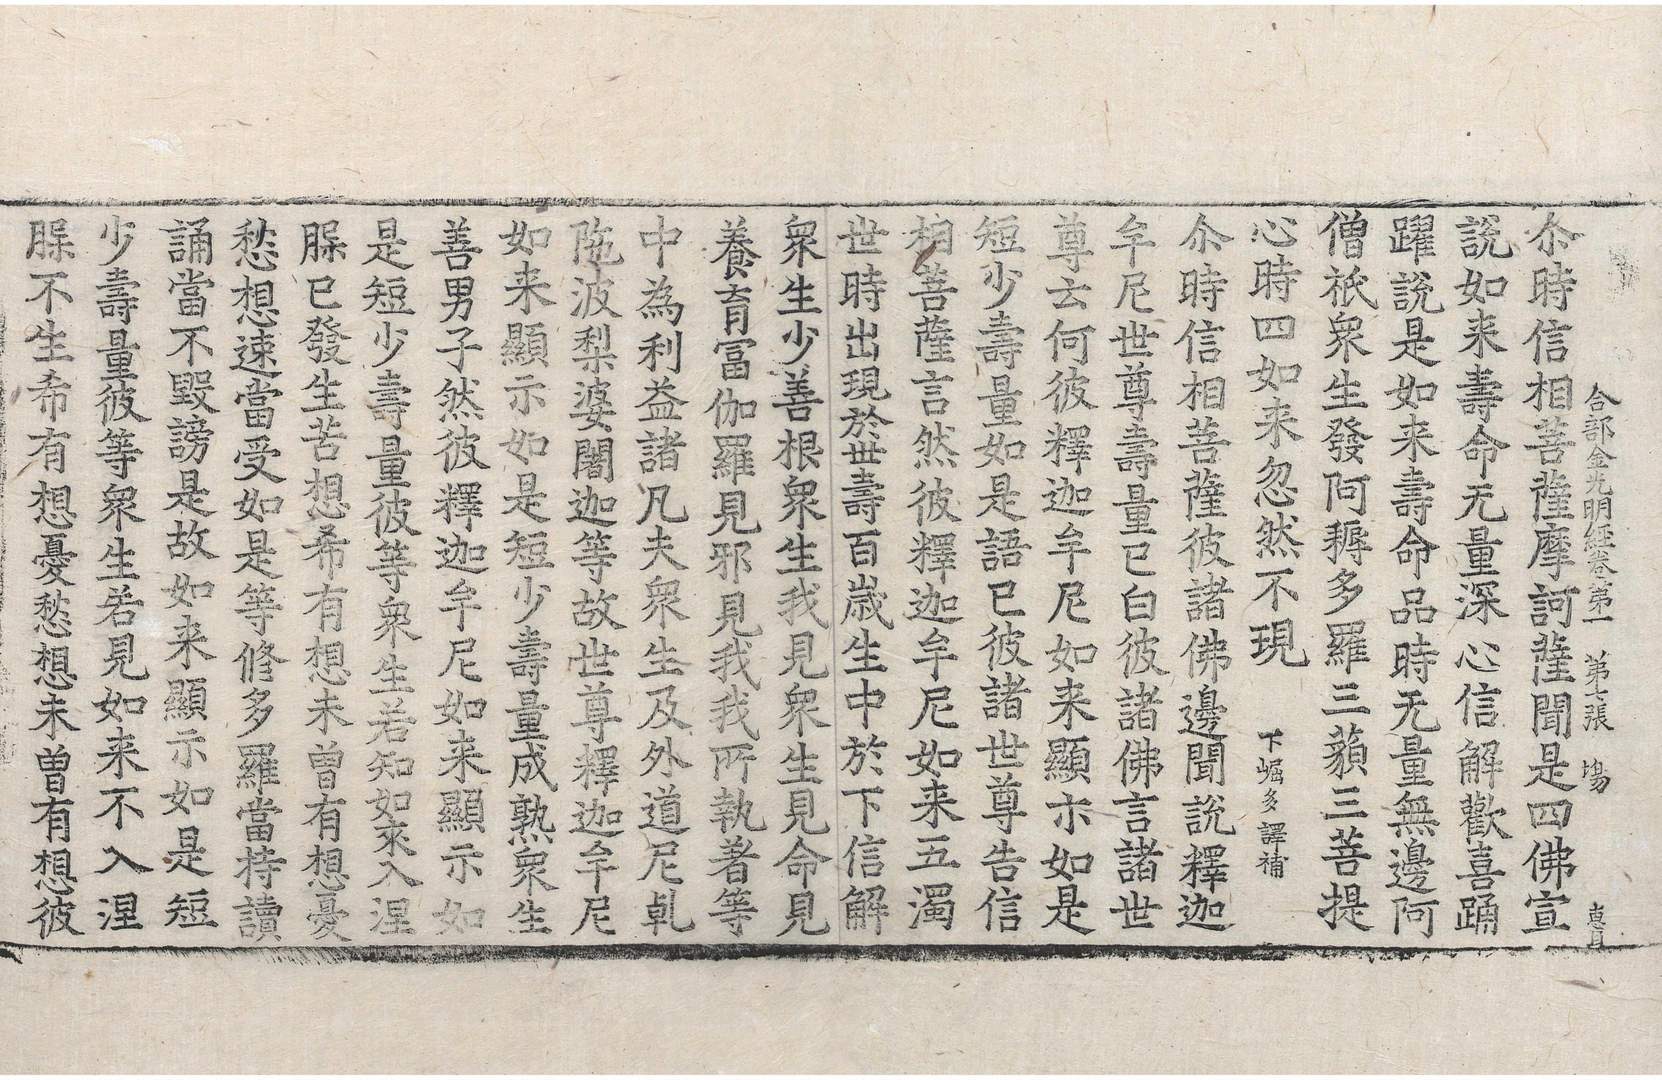 合部金光明經卷第一 第七張 場
尒時信相菩薩摩訶薩聞是四佛宣
說如来壽命无量深心信解歡喜踊
躍說是如来壽命品時无量無邊阿
僧祇衆生發阿耨多羅三藐三菩提
心時四如来忽然不現 下崛多譯補
尒時信相菩薩彼諸佛邊聞說釋迦
牟尼世尊壽量已白彼諸佛言諸世
尊云何彼釋迦牟尼如来顯示如是
短少壽量如是語已彼諸世尊告信
相菩薩言然彼釋迦牟尼如来五濁
世時出現於世壽百歲生中於下信解
衆生少善根衆生我見衆生見命見
養育冨伽羅見邪見我我所執著等
中為利益諸凡夫衆生及外道尼乹
陁波梨婆闍迦等故世尊釋迦牟尼
如来顯示如是短少壽量成熟衆生
善男子然彼釋迦牟尼如来顯示如
是短少壽量彼等衆生若知如來入涅
槃已發生苦想希有想未曽有想憂
愁想速當受如是等修多羅當持讀
誦當不毀謗是故如来顯示如是短
少壽量彼等衆生若見如来不入涅
槃不生希有想憂愁想未曽有想彼